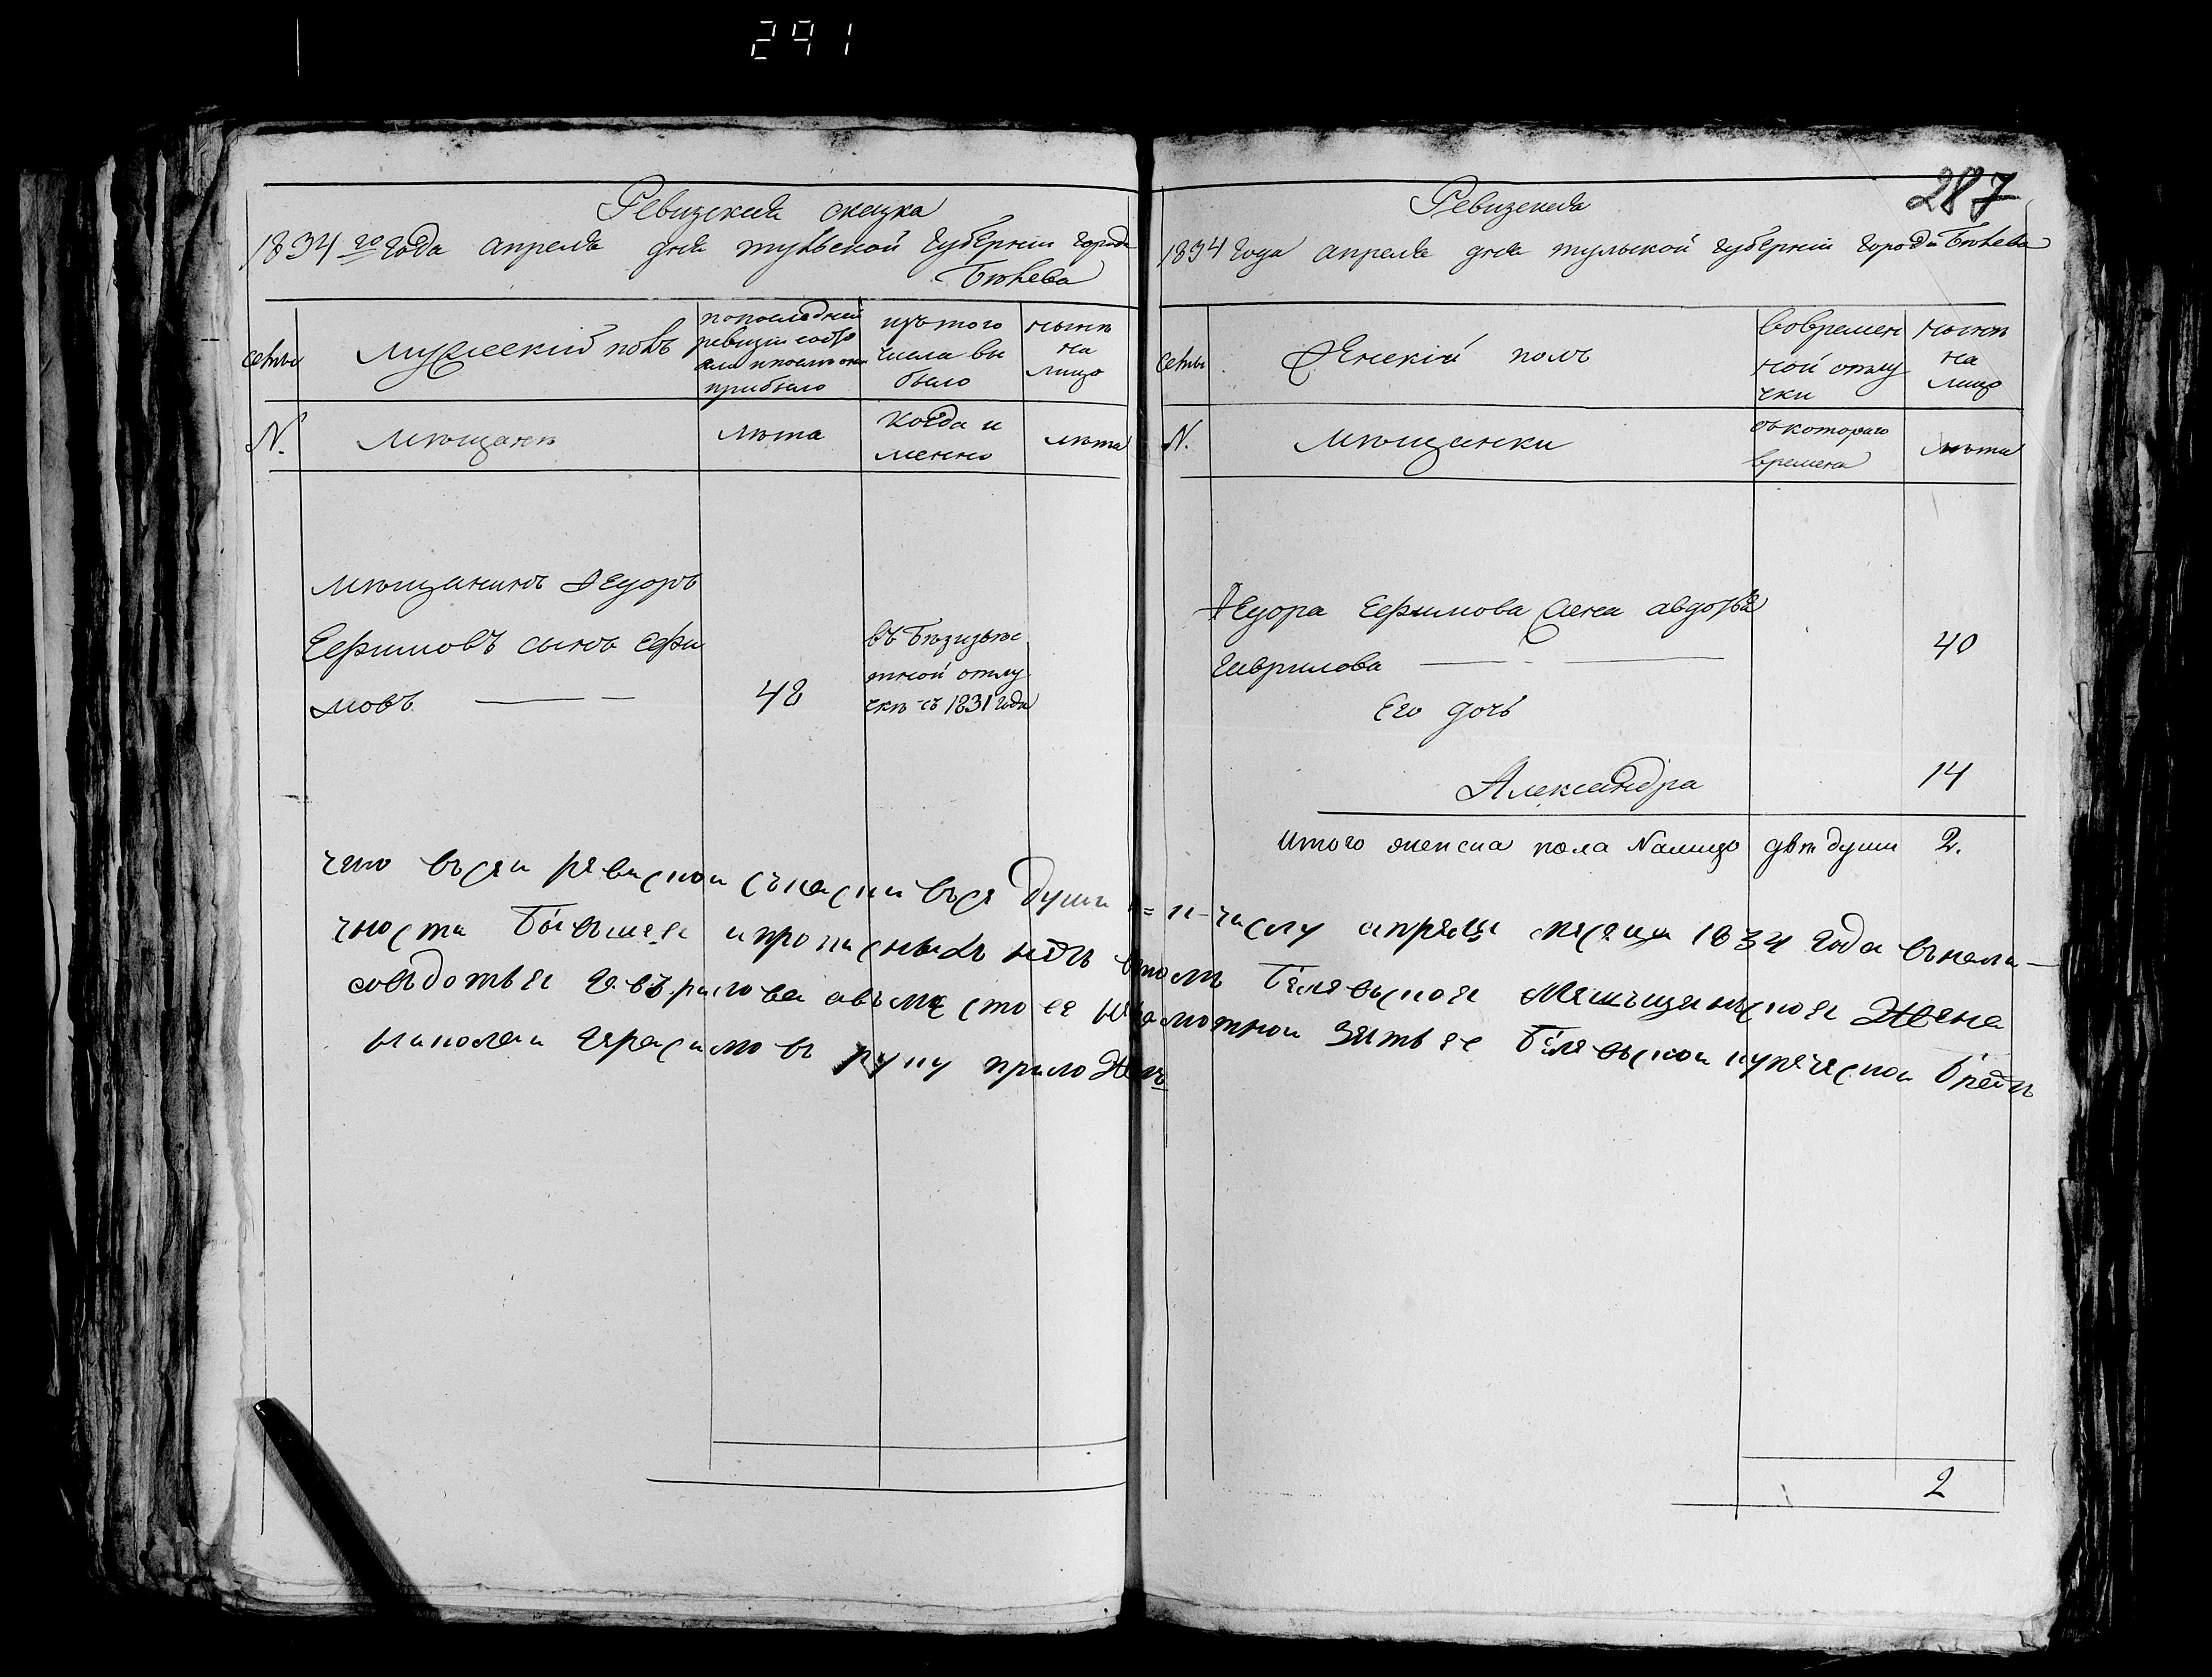 291
Ревизская сказка
1834 го года апреля дня тульской губернии города
Бѣлева
семьи
Мужеский полъ
попоследней ревизии состо
яли ипослѣ оной
прибыло
изътого
числа вы
было
нынѣ
на
лицо
N.
мѣщанѣ
лѣта
когда и
менно
лѣта
мѣщанинъ Ѳедоръ
Eефимовъ сынъ Ефи
мовъ
48
въ безизвѣс
тной отлу
чкѣ съ 1831 года
287
Ревизская
1834 года апреля дня тульской губернии города Бѣлева
семьи
Женский полъ
вовремен
ной отлу
чки
нынѣ
на
лицо
N.
мѣщанки
съ котораго
времена
лѣта
Ѳедора Ефимова жена авдотья
Гаврилова
40
Его дочь
Александра
14
итого женска пола Налицо двѣ души 2.
что въсеи ревиской съкаски въсе души 1= и-числу апреля месяца 1834 года вънали-
чности бывшее ипрописныхъ нѣтъ втомъ белевьская мешъщанъская Жена
овъдотья Гавърилова авъместо ее неграмотной зятье белевьской купеческой братъ
николаи герасимовъ руку приложилъ
2